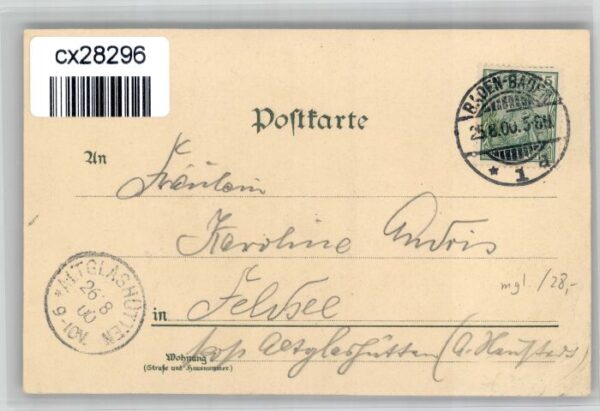 cx28296
Postkarte
5
BADEN-BADEN
25.8.00.5-6N
* 1 a
An
Fräulein
Karoline Andris
mgl. /28,-
*ALTGLASHÜTTEN
26 8
00
9-10V.
in Feldsee
Altglashütten (A. Neustadt)
Wohnung
(Straße und Hausnummer)